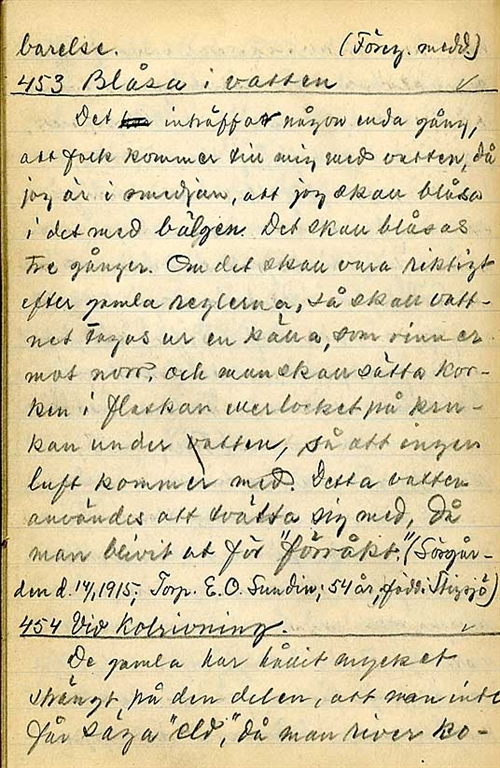 barelse. (Föreg. medd.)
453 Blåsa i vatten ✓
Det inträffar någon enda gång,
att folk kommer till mig med vatten, då
jag är i smedjan, att jag skall blåsa
i det med bälgen. Det skall blåsas
tre gånger. Om det skall vara riktigt
efter gamla reglerna, så skall vatt-
net tagas ur en källa, som rinner
mot norr, och man skall sätta kor-
ken i flaskan eller locket på kru-
kan under vatten, så att ingen
luft kommer med. Detta vatten
användes att tvätta sig med, då
man blivit ut för "förråkt." (Sörgår-
den d. 14, 1915; Torp. E. O. Sundin; 54 år, född i Stigsjö)
454 Vid kolrivning. ✓
De gamla har hållit mycket
strängt på den delen, att man inte
får säga "eld," då man river ko-